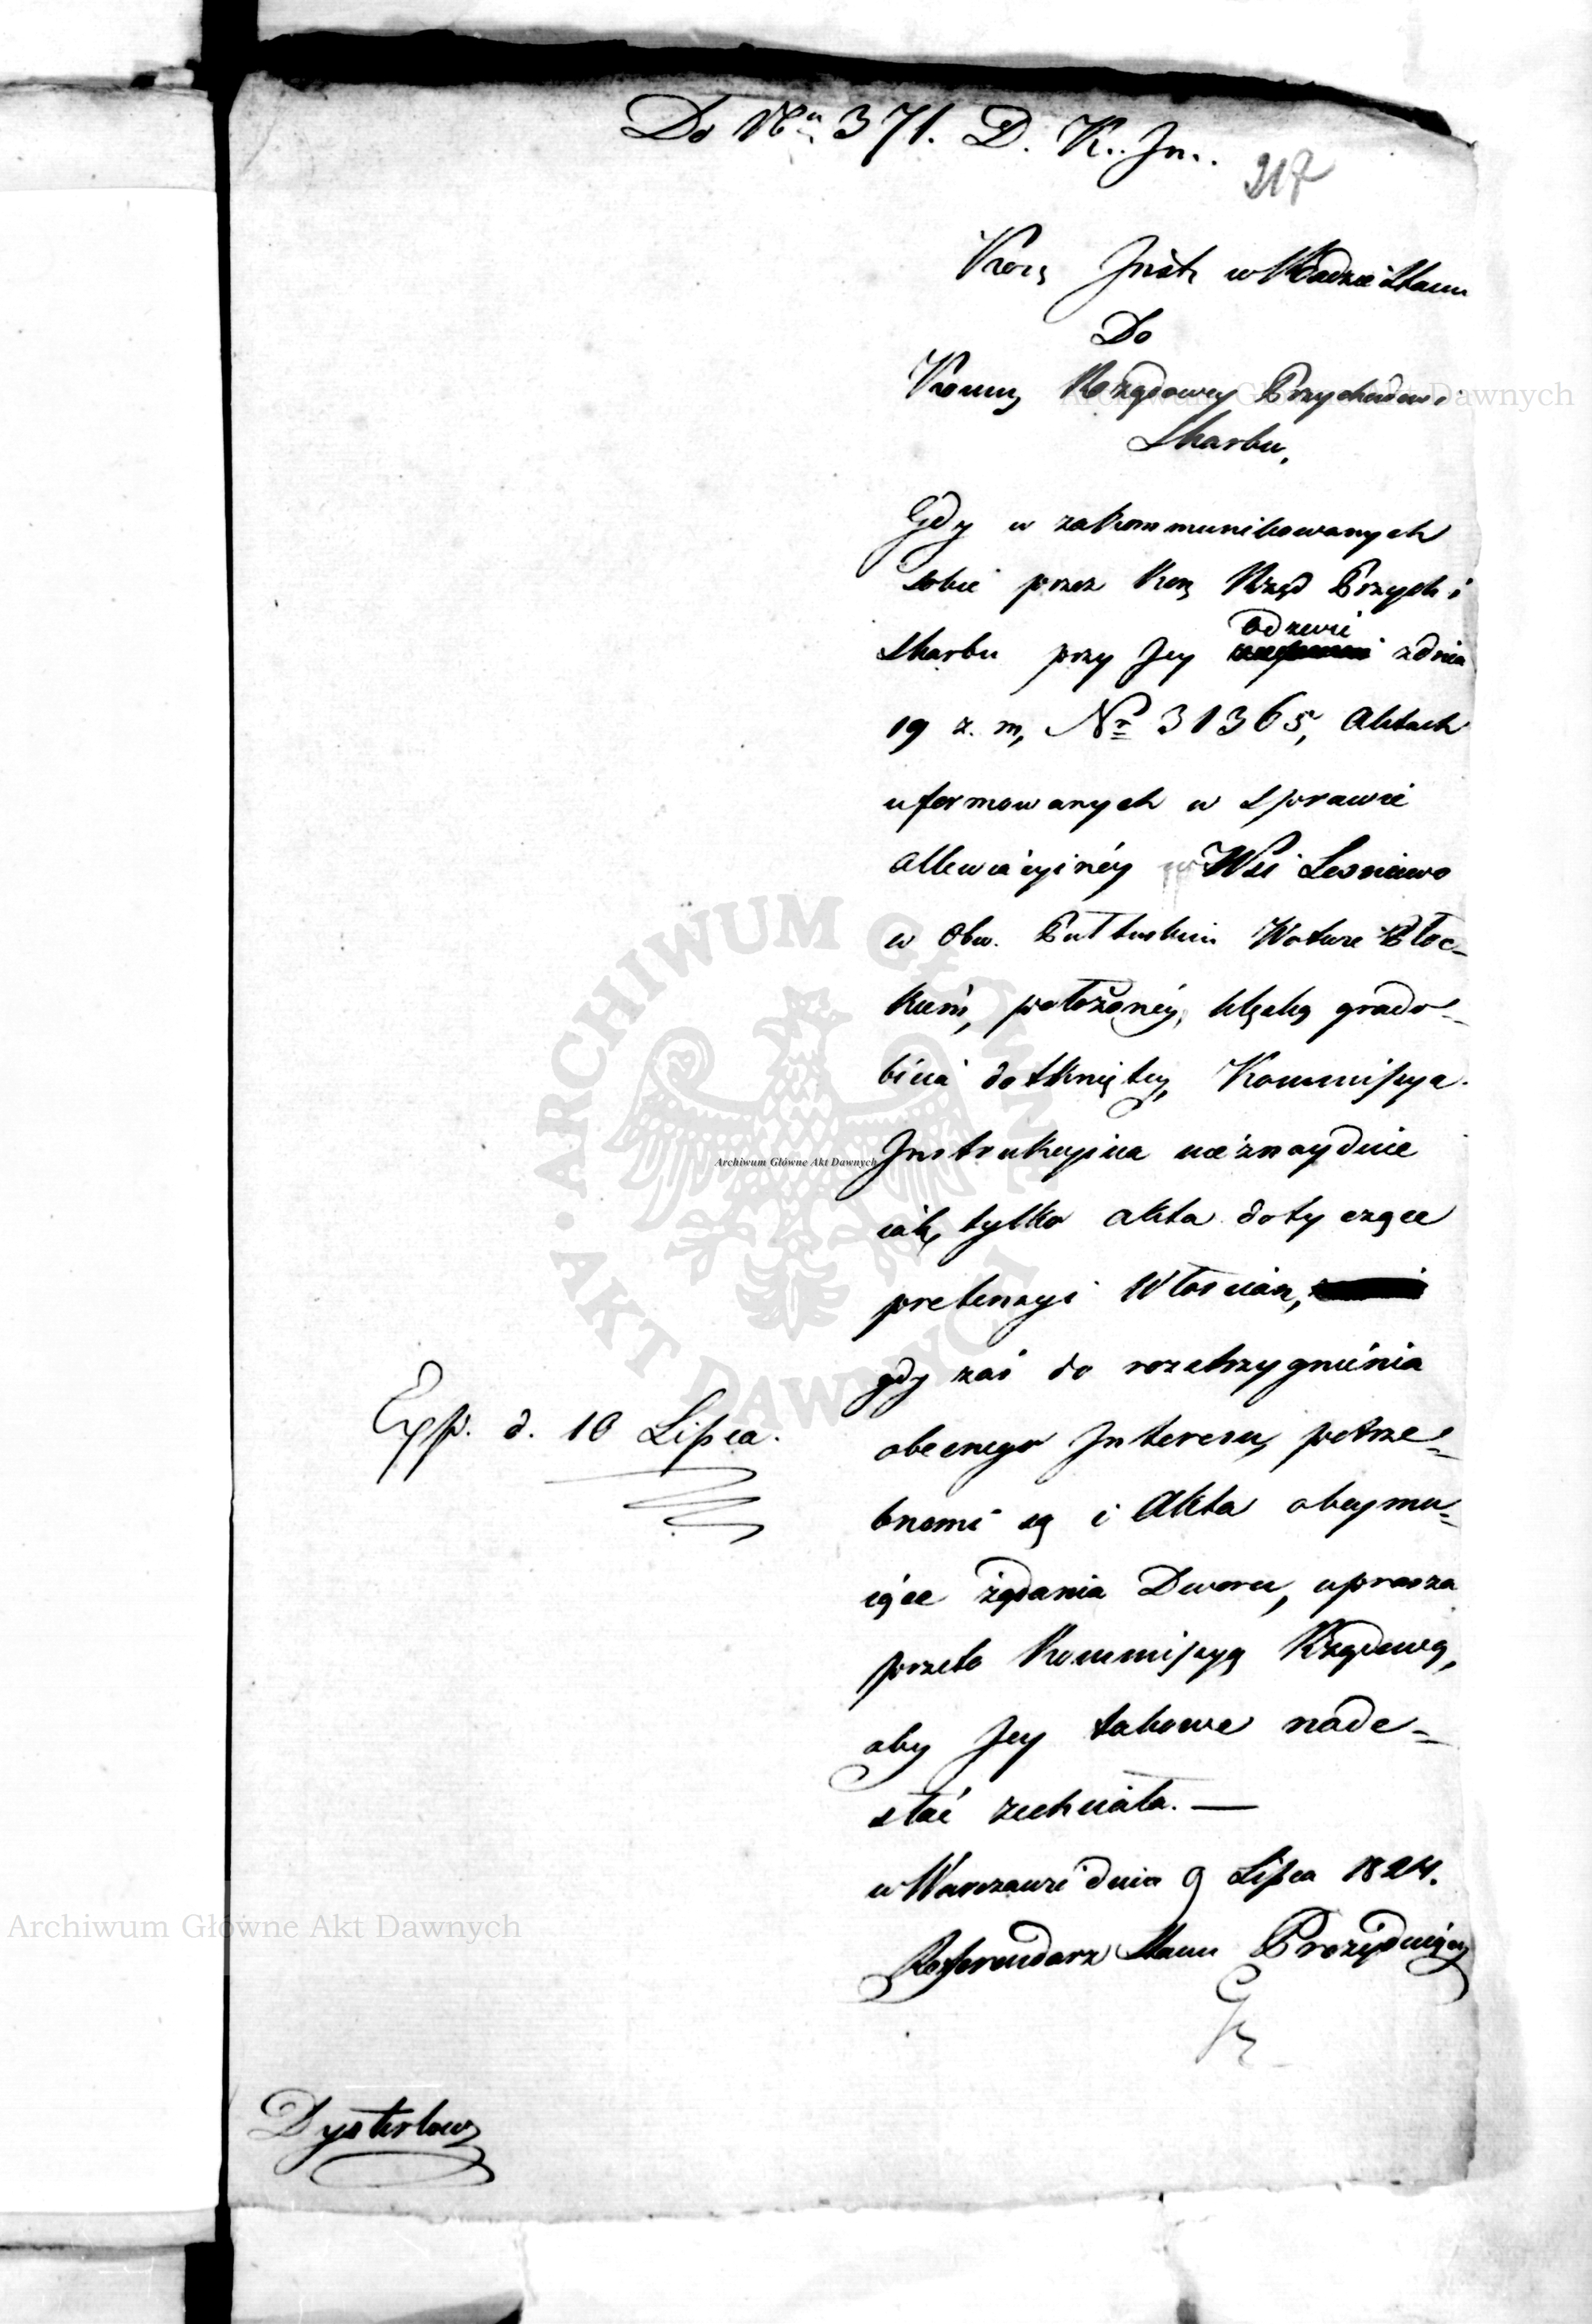 Do Nru 371. D. K. In.
217
Kom Instr w Radzie Stanu
Do
Kommy Rządowey Przychodow i
Skarbu,
Gdy w zakommunikowanych
sobie przez Kom Rząd Przych i
odezwie
Skarbu przy Jey z dnia
19 z. m, Nr 31365, Aktach
uformowanych w sprawie
allewiacyinéy w Wsi Lesniewo
w Obw. Pułtuskim Wotwie Płoc-
kiem, położonéy, klęską grado-
bicia dotkniętey, Kommissya
Instrukcyina nie znayduie
iak tylko akta dotyczące
pretensyi Włoscian,
gdy zaś do rozstrzygnienia
obecnego Interesu, potrze-
bnemi są i Akta obeymu-
iące żądania Dworu, uprasza
przeto Kommissyą Rządową,
aby Jey takowe nade-
słać zechciała. —
w Warszawie dnia 9 Lipca 1824.
Referendarz Stanu Prezyduiący
Exp. d. 10 Lipca.
Dysterlow
Archiwum Główne Akt Dawnych
ARCHIWUM GŁÓWNE AKT DAWNYCH
Archiwum Główne Akt Dawnych
Archiwum Główne Akt Dawnych